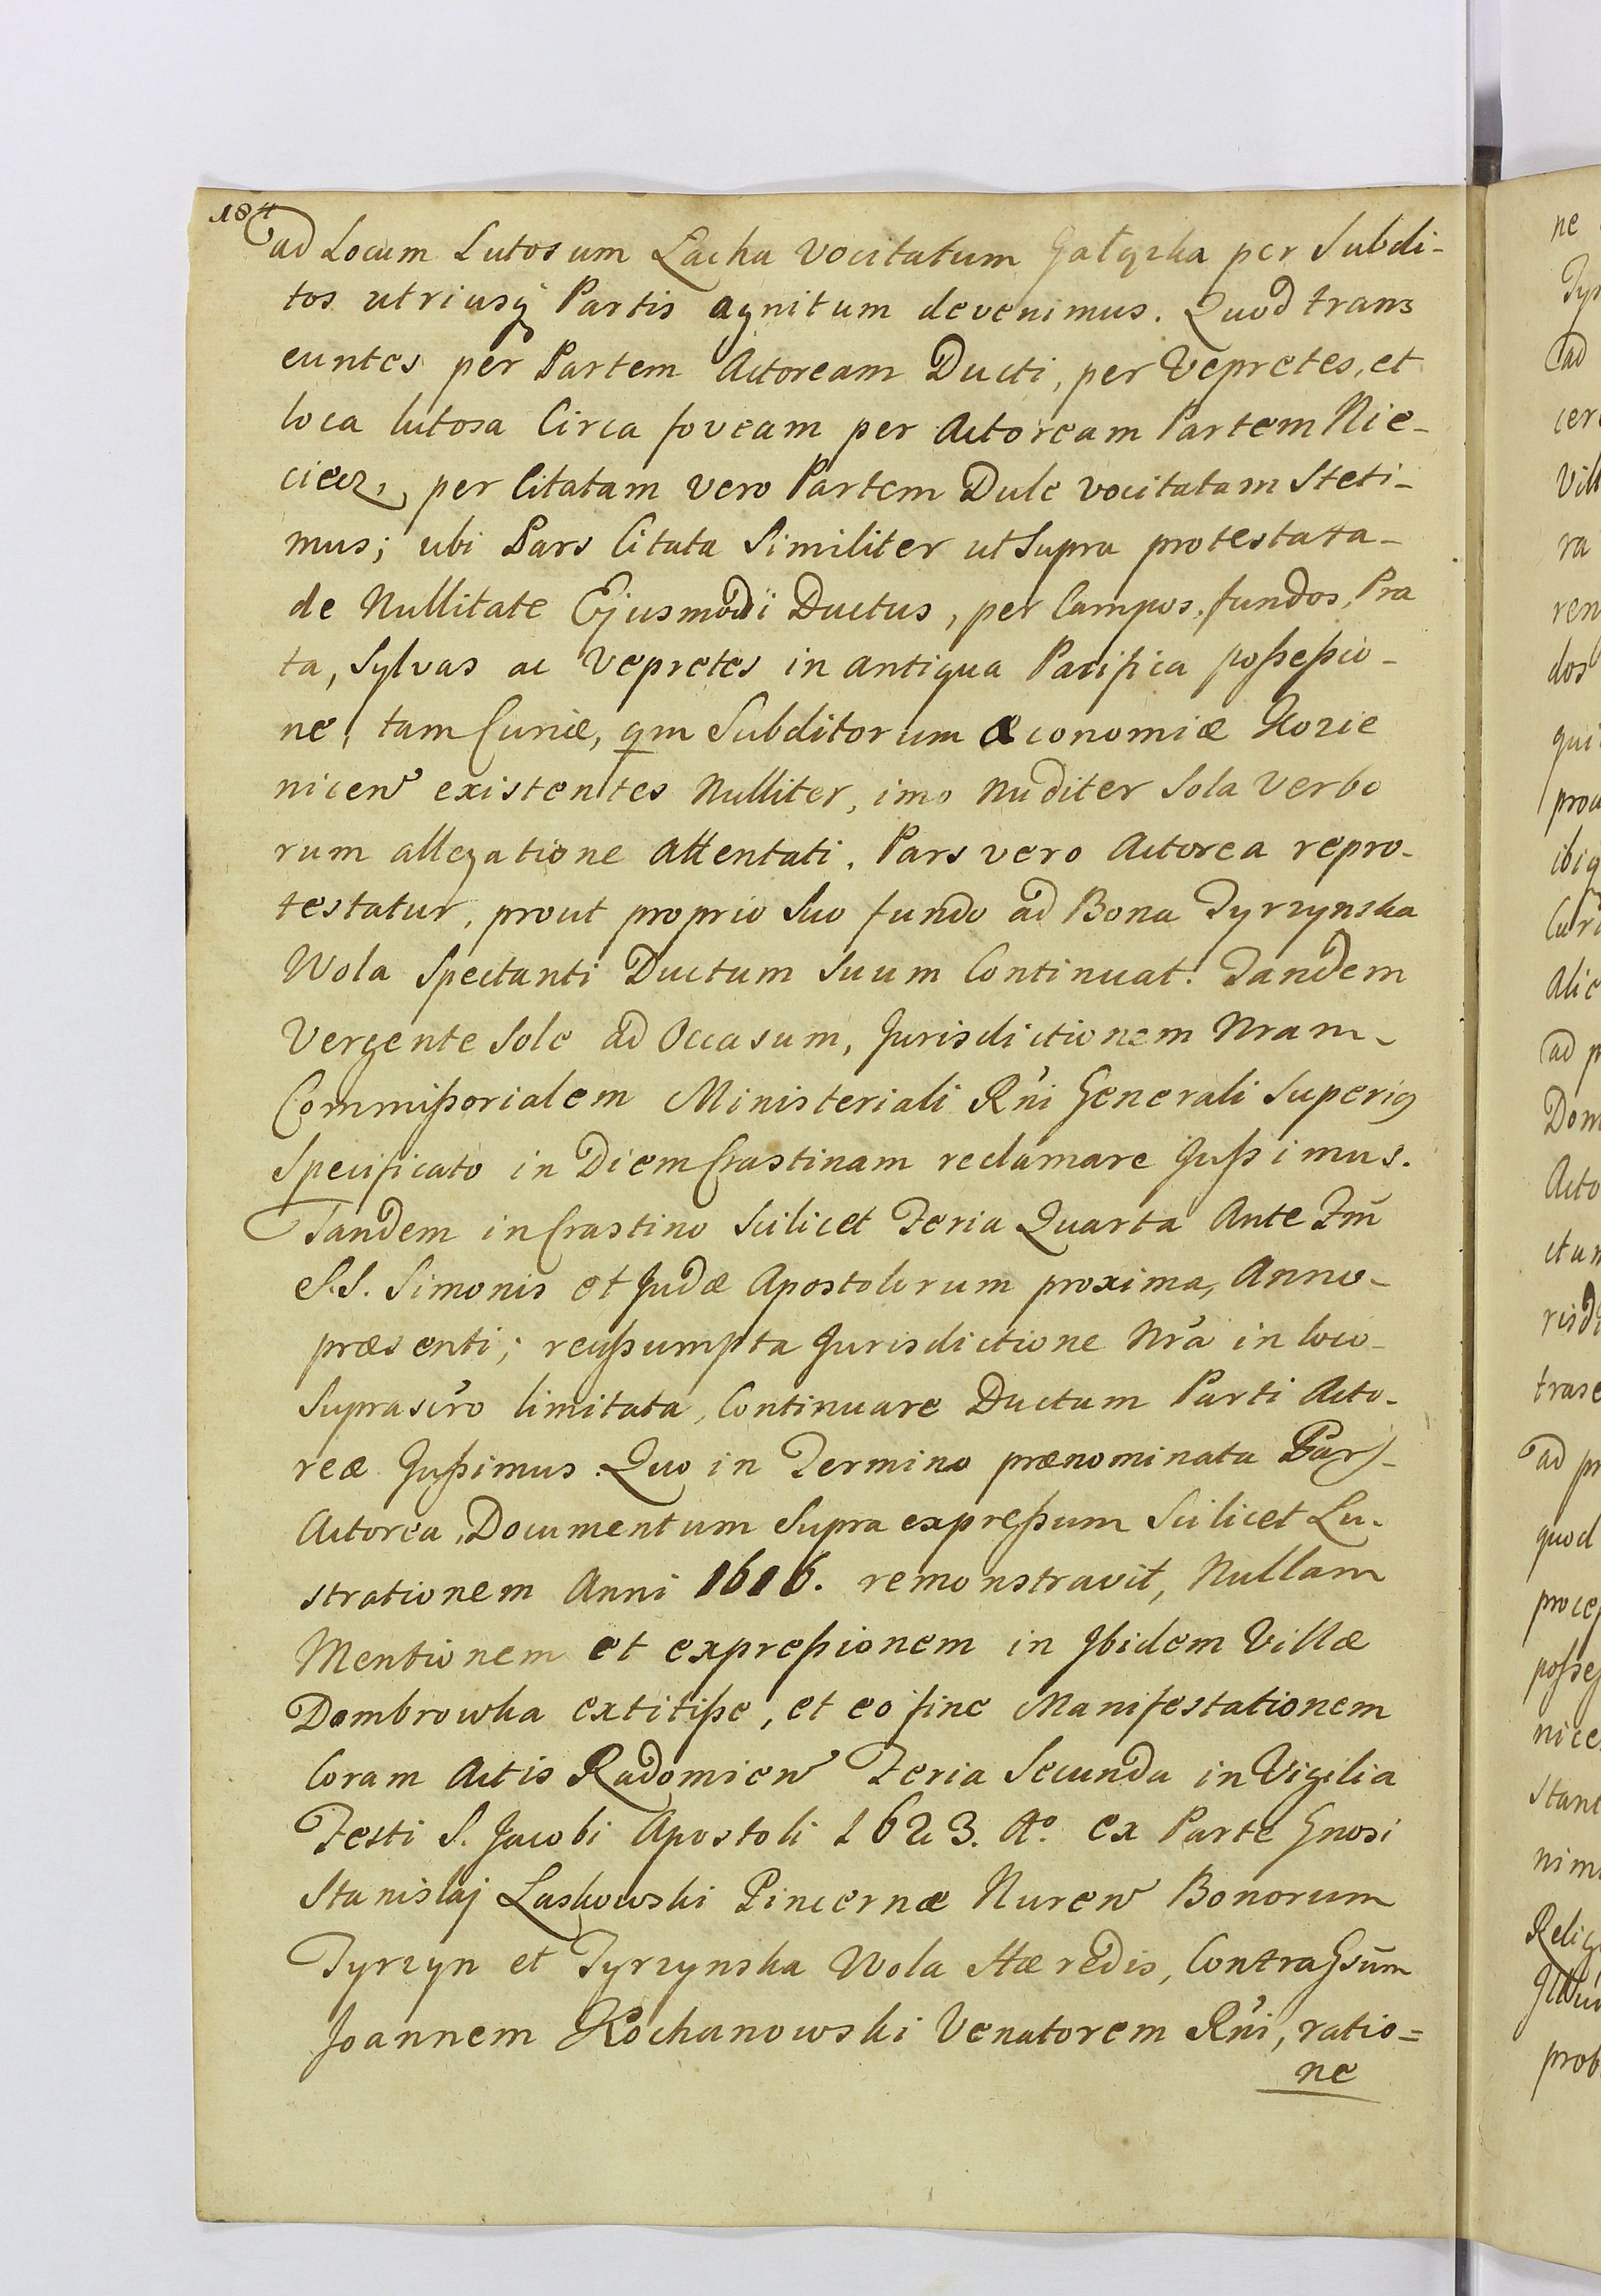 184
ad Locum Lutosum Łacha vocitatum Gałązka per Subdi-
tos utriusq Partis agnitum devenimus. Quod trans
euntes per Partem Actoream Ducti, per Vepretes, et
loca lutosa Circa foveam per Actoream Partem Nie-
ciecz, per Citatam vero Partem Dule vocitatam Steti-
mus; ubi Pars Citata Similiter ut Supra protestata-
de Nullitate Ejusmodi Ductus, per Campos, fundos, Pra
ta, Sylvas ac Vepretes in antiqua Pacifica poßeßio-
ne, tam Curiæ, qm Subditorum Æconomiæ Kozie
nicen existentes Nulliter, imo Nuditer Sola Verbo
rum allegatione attentati. Pars vero Actorea repro-
testatur, prout proprio Suo fundo ad Bona Tyrzynska
Wola Spectanti Ductum Suum Continuat. Tandem
Vergente Sole ad Occasum, Jurisdictionem Nram-
Commißorialem Ministeriali Rni Generali Superig
Specificato in Diem Crastinam reclamare Jußimus.
Tandem in Crastino Scilicet Feria Quarta Ante Fm
S.S. Simonis et Judæ Apostolorum proxima, Anno-
præsenti; reaßumpta Jurisdictione Nra in loco-
Suprascro limitata, Continuare Ductum Parti Acto-
reæ Jußimus. Quo in Termino prænominata Pars-
Actorea, Documentum Supra expreßum Scilicet Lu-
strationem Anni 1616. remonstravit, Nullam
Mentionem et expreßionem in Ibidem Villæ
Dombrowka extitiße, et eo fine Manifestationem
Coram Actis Radomien Feria Secunda in Vigilia
Festi S. Jacobi Apostoli 1623. Ao. ex Parte Gnosi
Stanislaj Laskowski Pincernæ Nuren Bonorum
Tyrzyn et Tyrzynska Wola Hæredis, Contra Gsum
Joannem Kochanowski Venatorem Rni, ratio=
ne